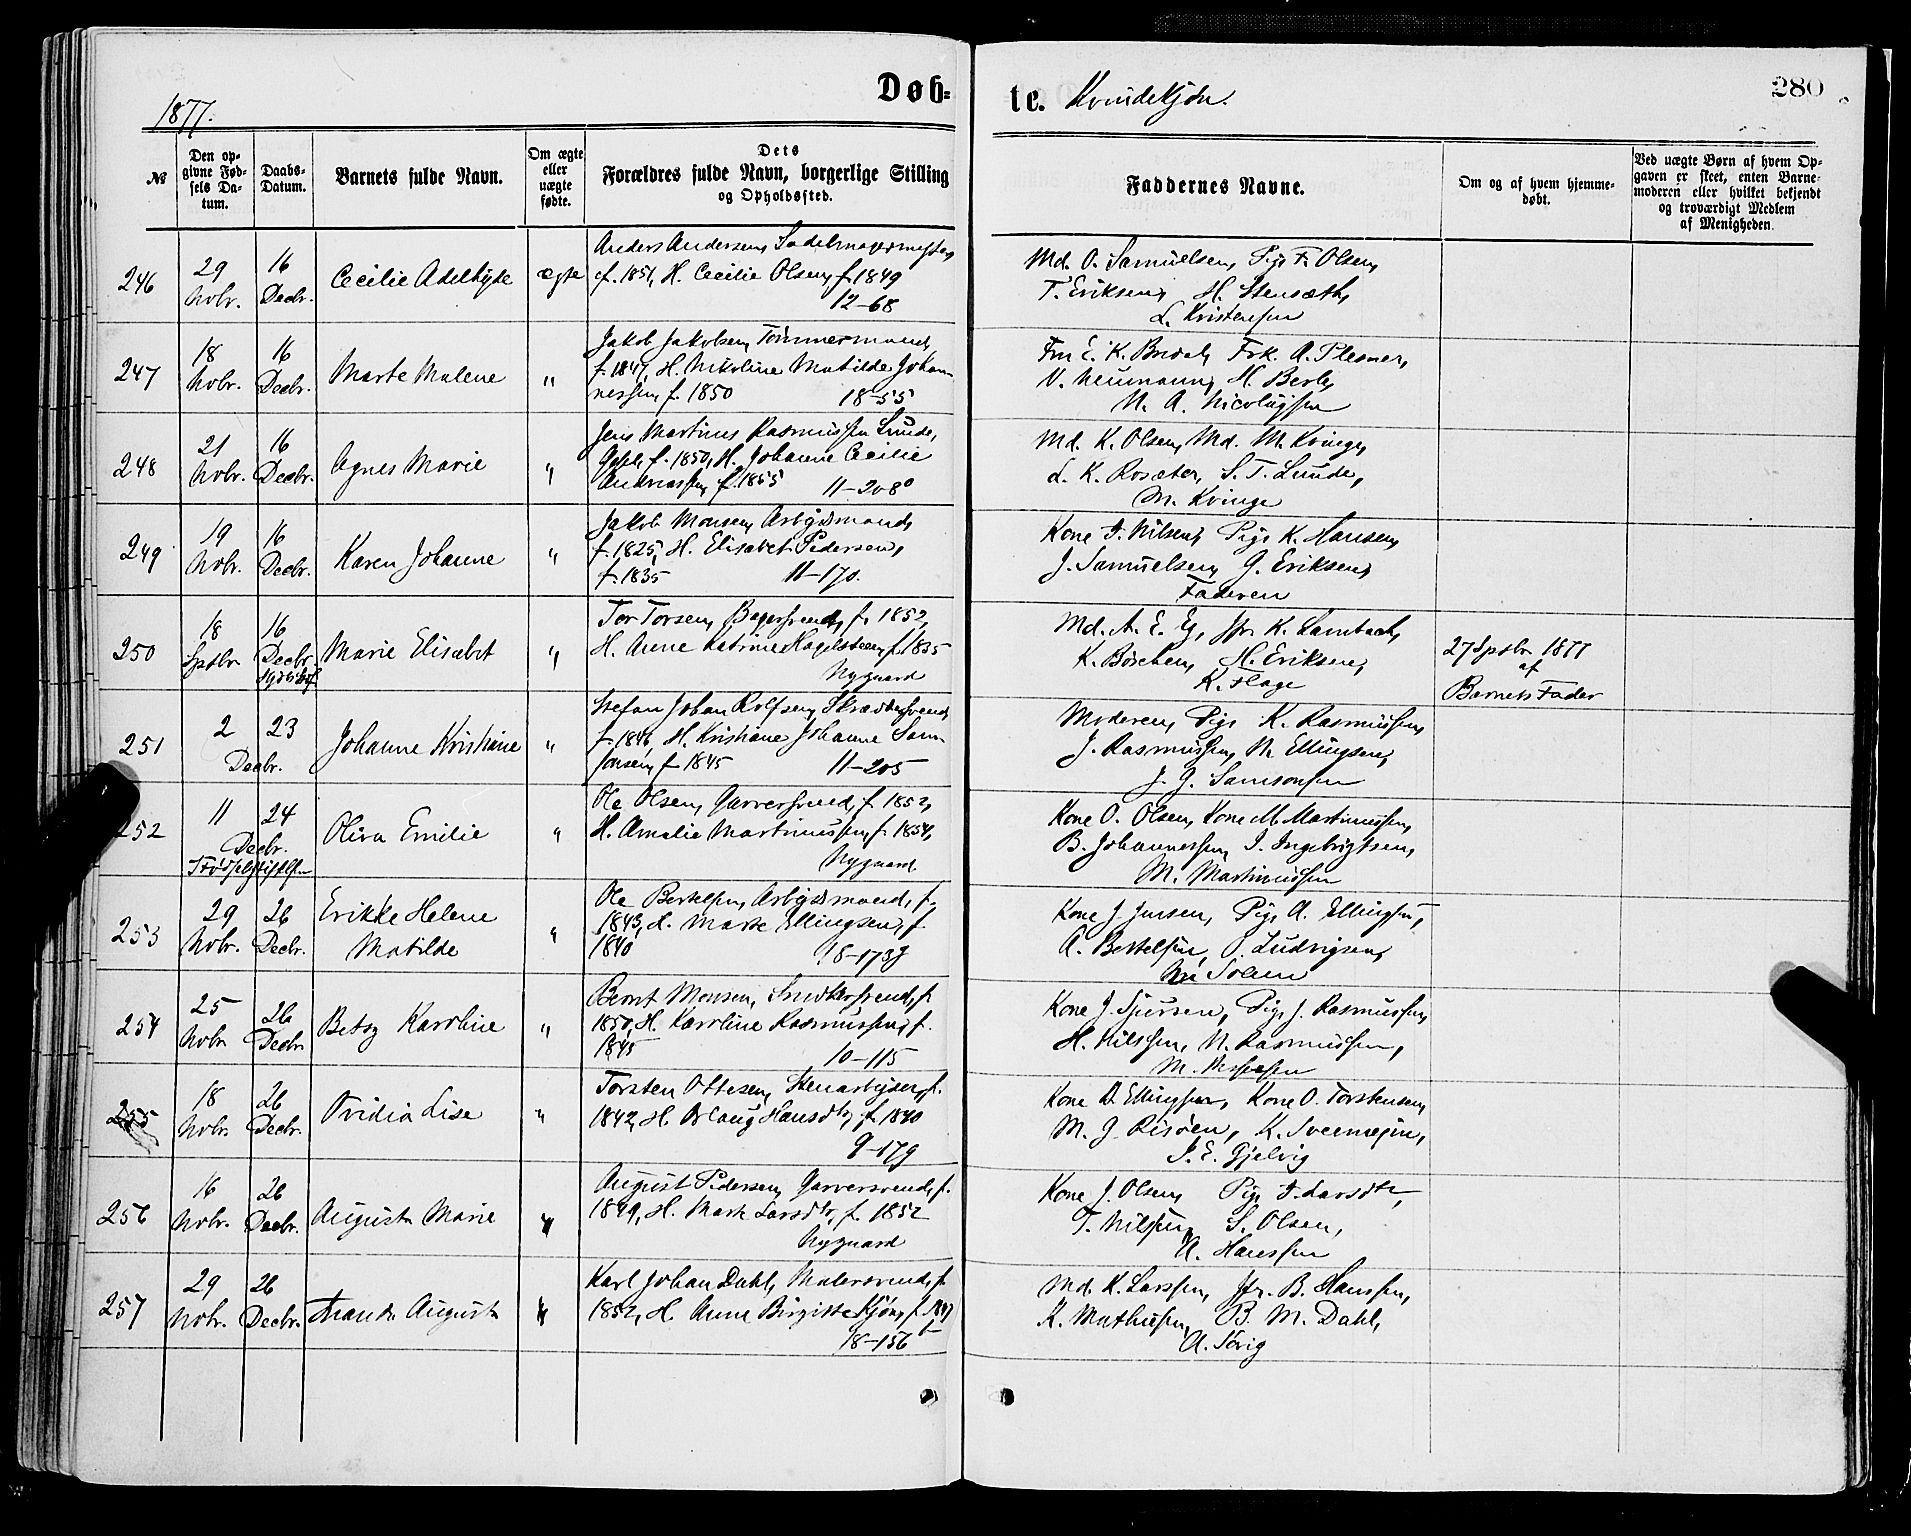 1877.
Døb-
te. Kvindekjøn.
280
№
Den op-
givne Fød-
sels Da-
tum.
Daabs-
Datum.
Barnets fulde Navn.
Om ægte
eller
uægte
fødte.
Dets
Forældres fulde Navn, borgerlige Stilling
og Opholdssted.
Faddernes Navne.
Om og af hvem hjemme-
døbt.
Ved uægte Børn af hvem Op-
gaven er skeet, enten Barne-
moderen eller hvilket bekjendt
og troværdigt Medlem
af Menigheden.
246
29
Novbr.
16
Decbr.
Cecilie Adelhyde
ægte
Anders Andersen, Sadelmagermester,
f. 1851, H. Cecilie Olsen, f. 1849
12-68
Md. O. Samuelsen, Pige F. Olsen,
T. Eriksen, H. Stensæth,
L. Kristensen
247
18
Novbr.
16
Decbr.
Marte Malene
"
Jakob Jakobsen, Tømmermand,
f. 1847, H. Nikoline Matilde Johan-
nessen, f. 1850
18-55
Fru E. K. Bredal, Frk. A. Plesner,
V. Neumann, H. Berle,
N. A. Nicolaysen
248
21
Novbr.
16
Decbr.
Agnes Marie
"
Jens Martinus Rasmussen Lunde,
f. 1850, H. Johanne Cecilie
Andreassen, f. 1855
11-208°
Md. K. Olsen, Md. M. Kvinge,
L. K. Rosæter, S. T. Lunde,
M. Kvinge
249
19
Novbr.
16
Decbr.
Karen Johanne
"
Jakob Monsen, Arbejdsmand,
f. 1825, H. Elisabet Pedersen,
f. 1835
11-170.
Kone F. Nilsen, Pige K. Hansen,
J. Samuelsen, G. Eriksen,
Faderen
250
18
Sptbr.
16
Decbr.
Marie Elisabet
"
Tor Torsen, Bagersvend, f. 1852,
H. Anne Katrine Hagelsteen, f. 1835
Nygaard
Md. A. E. Eg, Jfr. K. Lambach,
K. Böschen, H. Eriksen,
K. Flage
27 Sptbr. 1877
af
Barnets Fader
251
2
23
Decbr.
Johanne Kristiane
"
Stefan Johan Rolfsen, Skræddersvend,
f. 1846, H. Kristiane Johanne Sam-
sonsen, f. 1845
11-205
Moderen, Pige K. Rasmussen,
J. Rasmussen, N. Ellingsen,
J. G. Samsonsen
252
11
24
Decbr.
Oliva Emilie
"
Ole Olsen, Garversvend, f. 1852,
H. Amalie Martinussen, f. 1854,
Nygaard
Kone O. Olsen, Kone M. Martinussen,
B. Johannessen, I. Ingebrigtsen,
M. Martinussen
253
29
Novbr.
26
Decbr.
Erikke Helene
Matilde
"
Ole Bertelsen, Arbejdsmand, f.
1843, H. Marte Ellingsen, f.
1840
Kone J. Jensen, Pige A. Ellingsen,
A. Bertelsen, O. Ludvigsen,
Solem
254
25
Novbr.
26
Decbr.
Betsy Karoline
"
Bernt Monsen, Snedkersvend, f.
1850, H. Karoline Rasmussen, f.
1845
10-115
Kone J. Sjursen, Pige J. Rasmussen,
H. Nilssen, N. Rasmussen,
255
18
Novbr.
26
Decbr.
Ovidia Lise
"
Torsten Ottesen, Stenarbejder, f.
1842, H. Oslaug Hansdtr, f. 1840
9-179
Kone D. Ellingsen, Kone O. Torstensen,
M. J. Risöen,
I. E. Gjelvig
256
16
Novbr.
26
Decbr.
Augusta Marie
"
August Pedersen, Garversvend, f.
1849, H. Marte Larsdtr, f. 1852
Nygaard
Kone J. Olsen, Pige F. Larsdtr,
T. Nilssen, S. Olsen,
A. Hanssen
257
29
Novbr.
26
Decbr.
Augusta
"
Karl Johan Dahl, Malersvend, f.
1852, H. Anne Birgitte
18-156 b
Md. K. Larssen, Jfr. B. Hanssen,
K. Mathiesen, B. M. Dahl,